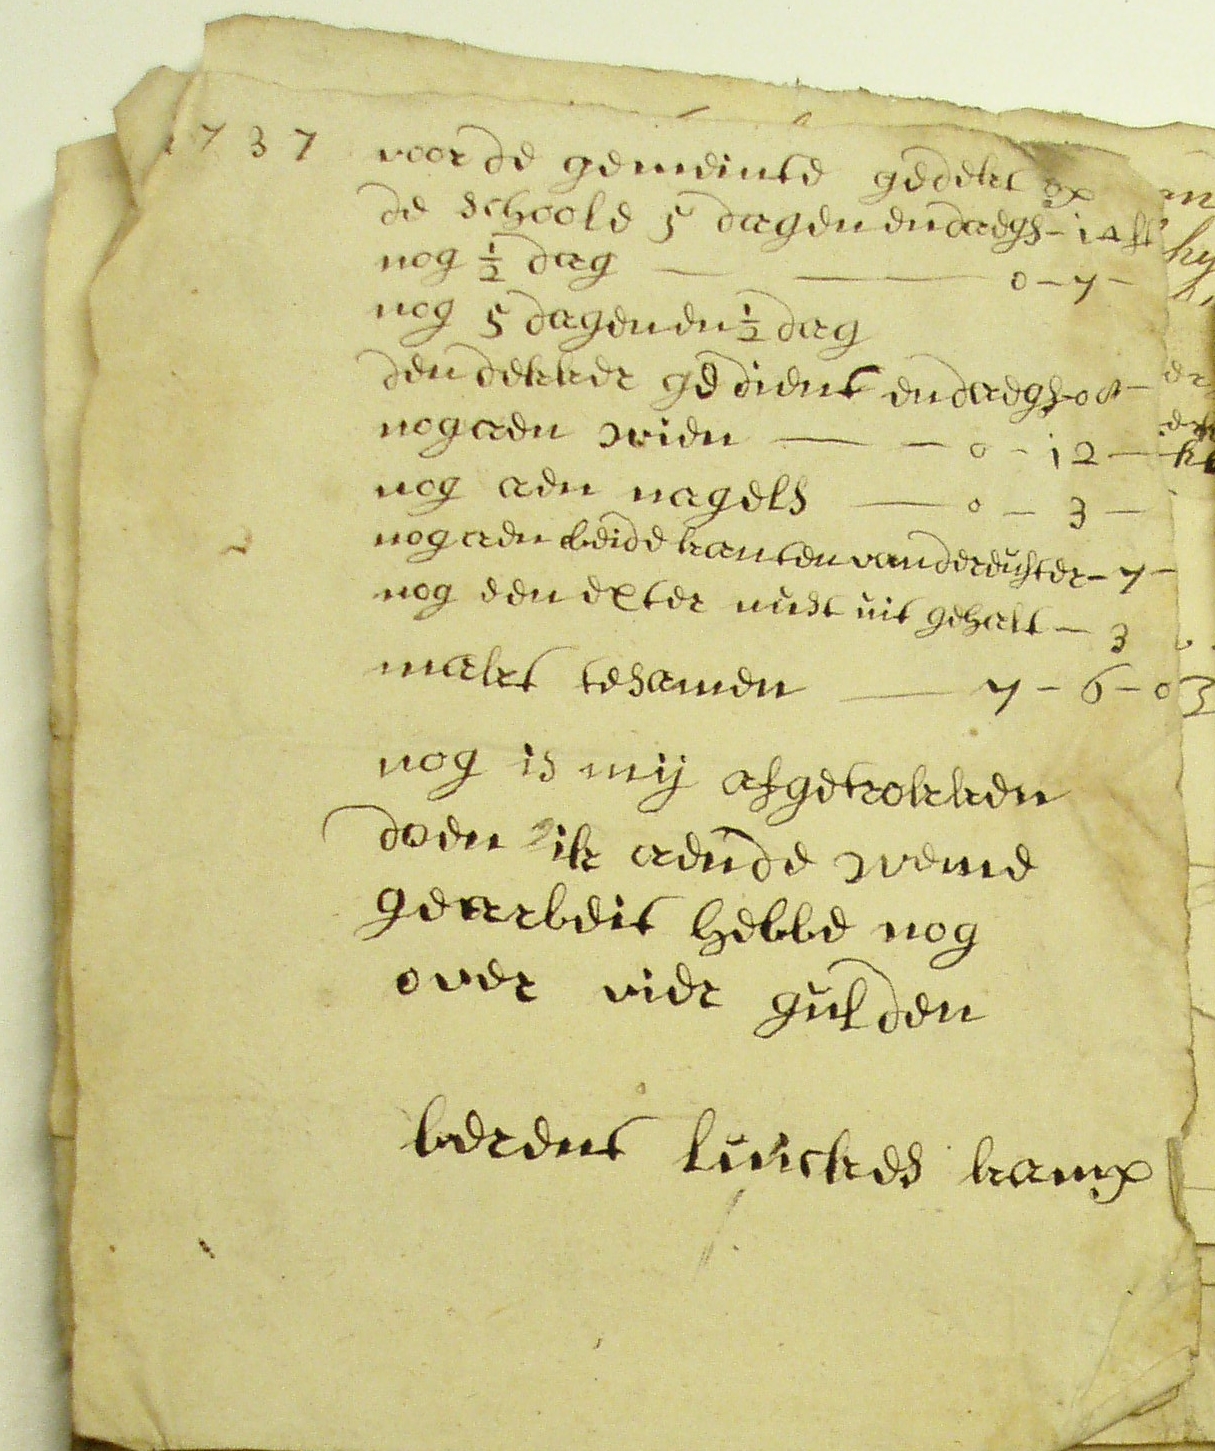 1737 voor de gemeinte gedekt op
de schoole 5 dagen en daegs - 14 st
nog ½ dag — — 0 - 7 -
nog 5 dagen en ½ dag
den dekker gedient en daegs - 0 8 -
nog aen wien — — 0 - 12 -
nog aen nagels — 0 - 3 -
nog aen beide kanten van der - 7 -
nog een exter nust uit gehalt - 3
makt tesamen — 7 - 6 - 0
nog is mij afgetrokken
doen ik aen de weme
gearbeit hebbe nog
over vier gulden
berent luickes kamp